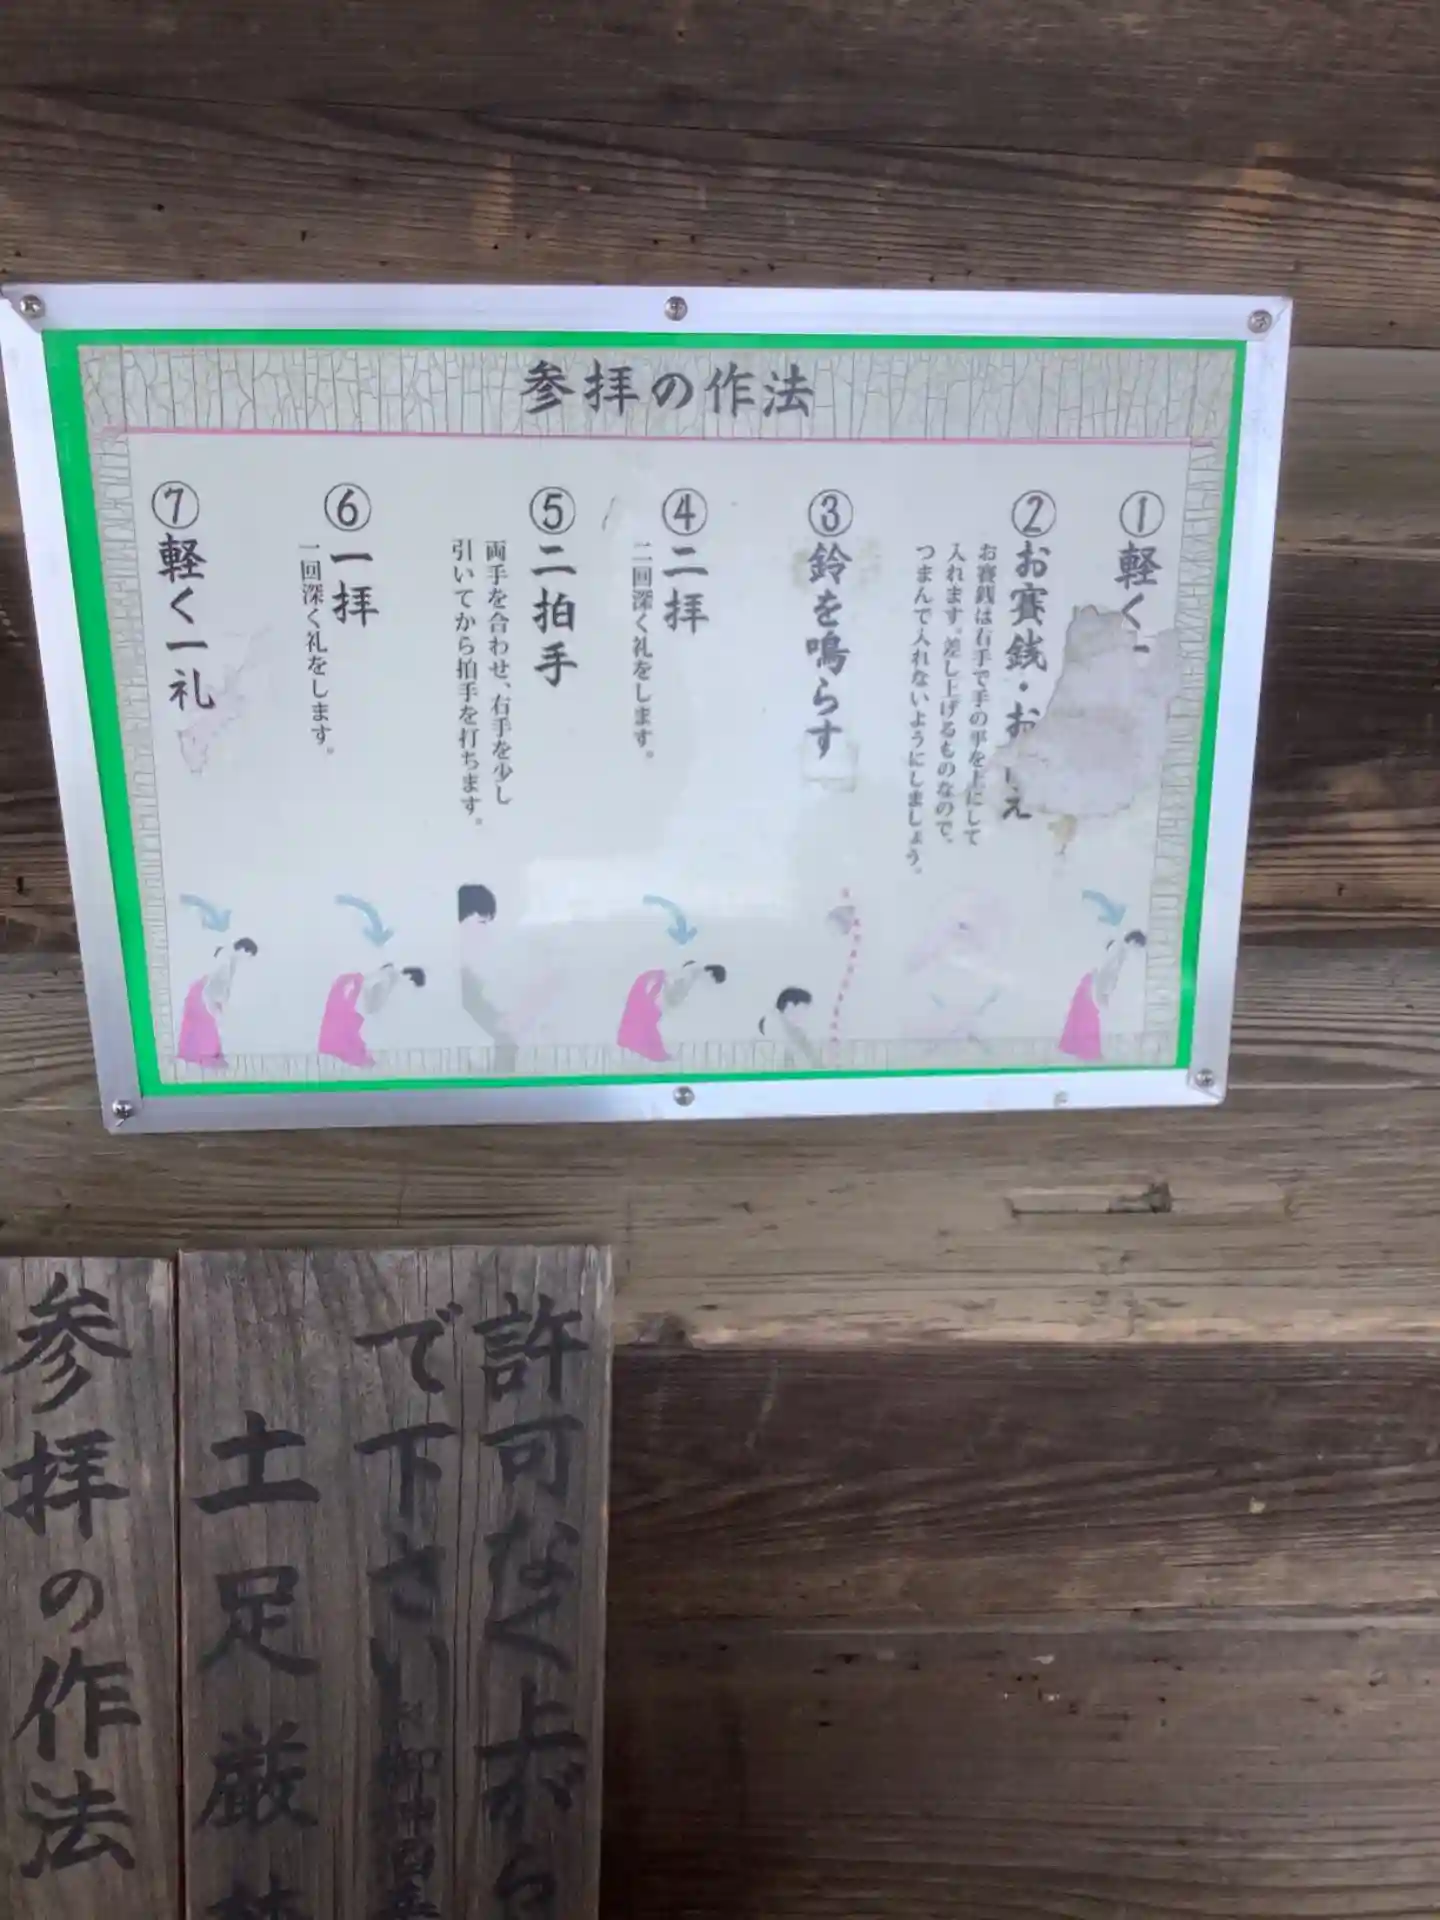 参拝の作法
①軽く一
②お賽銭・お
え
お賽銭は右手で手の平を上にして
入れます。差し上げるものなので、
つまんで入れないようにしましょう。
③鈴を鳴らす
④二拝
二回深く礼をします。
⑤二拍手
両手を合わせ、右手を少し
引いてから拍手を打ちます。
⑥一拝
一回深く礼をします。
⑦軽く一礼
許可なく上がら
で下さい
土足厳
参拝の作法